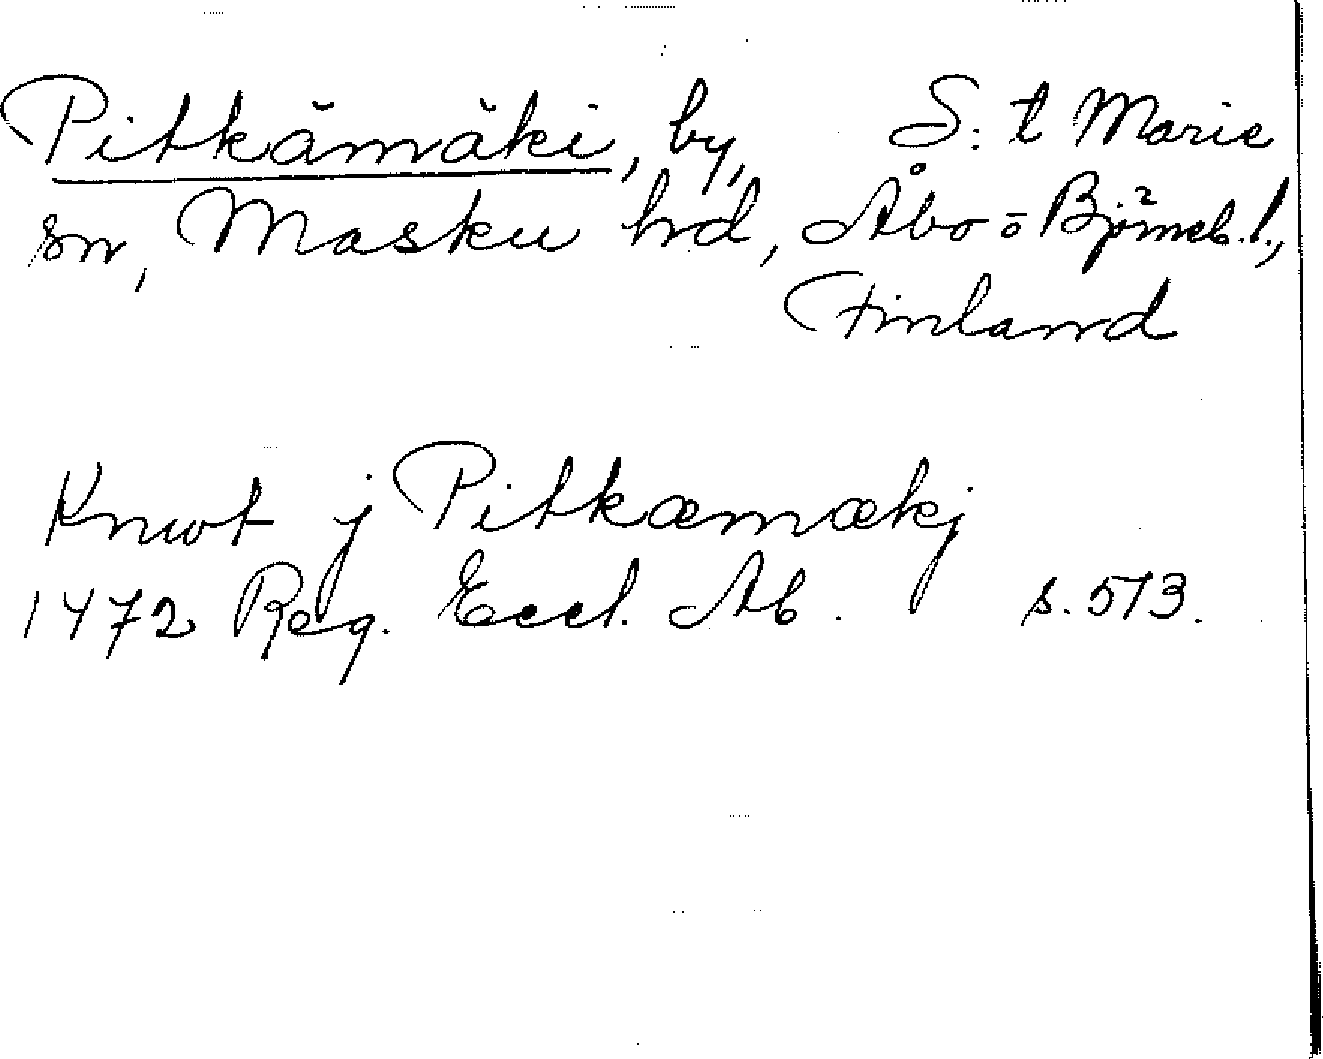 Pitkämäki, by, S:t Marie
sn, Masku hd, Åbo-o Björneb. l.,
Finland
Knwt j Pitkæmækj
1472 Reg. Eccl. Ab. s. 513.